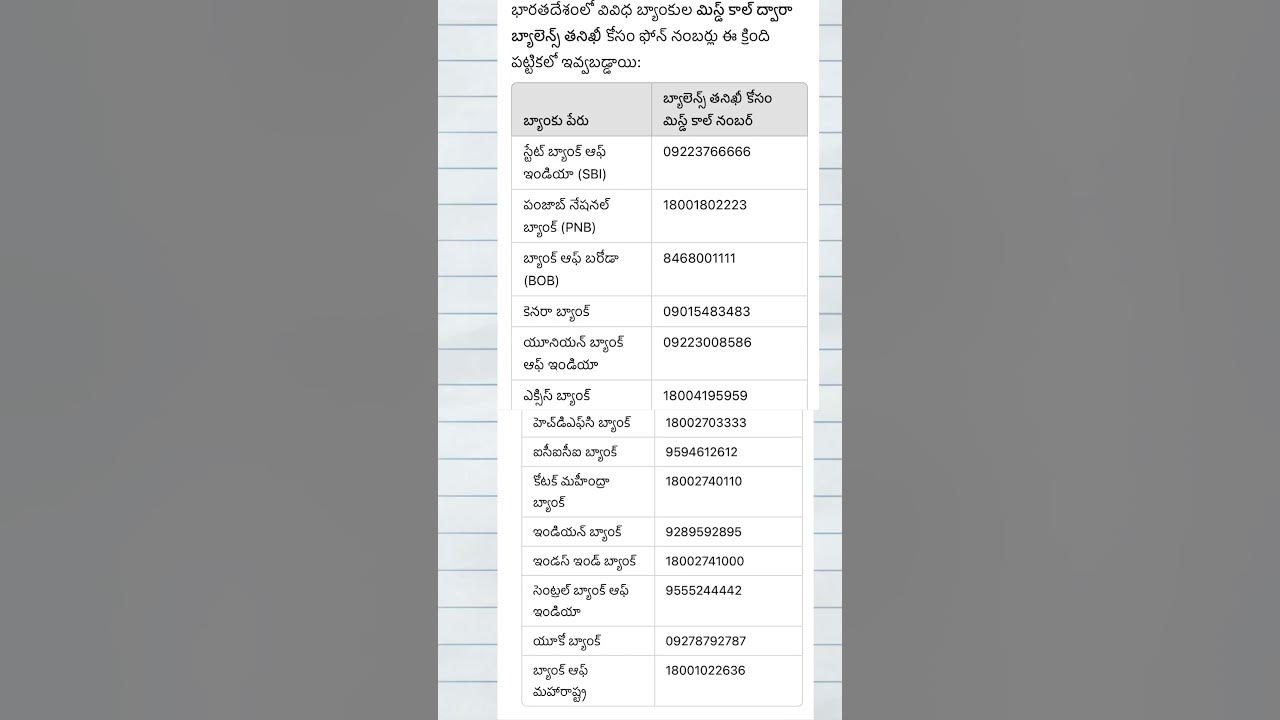 భారతదేశంలో వివిధ బ్యాంకుల మిస్డ్ కాల్ ద్వారా
బ్యాలెన్స్ తనిఖీ కోసం ఫోన్ నంబర్లు ఈ క్రింది
పట్టికలో ఇవ్వబడ్డాయి:
బ్యాంకు పేరు
బ్యాలెన్స్ తనిఖీ కోసం
మిస్డ్ కాల్ నంబర్
స్టేట్ బ్యాంక్ ఆఫ్
ఇండియా (SBI)
09223766666
పంజాబ్ నేషనల్
బ్యాంక్ (PNB)
18001802223
బ్యాంక్ ఆఫ్ బరోడా
(BOB)
8468001111
కెనరా బ్యాంక్
09015483483
యూనియన్ బ్యాంక్
ఆఫ్ ఇండియా
09223008586
ఎక్సిస్ బ్యాంక్
18004195959
హెచ్‌డిఎఫ్‌సి బ్యాంక్
18002703333
ఐసీఐసీఐ బ్యాంక్
9594612612
కోటక్ మహీంద్రా
బ్యాంక్
18002740110
ఇండియన్ బ్యాంక్
9289592895
ఇండస్ ఇండ్ బ్యాంక్
18002741000
సెంట్రల్ బ్యాంక్ ఆఫ్
ఇండియా
9555244442
యూకో బ్యాంక్
09278792787
బ్యాంక్ ఆఫ్
మహారాష్ట్ర
18001022636